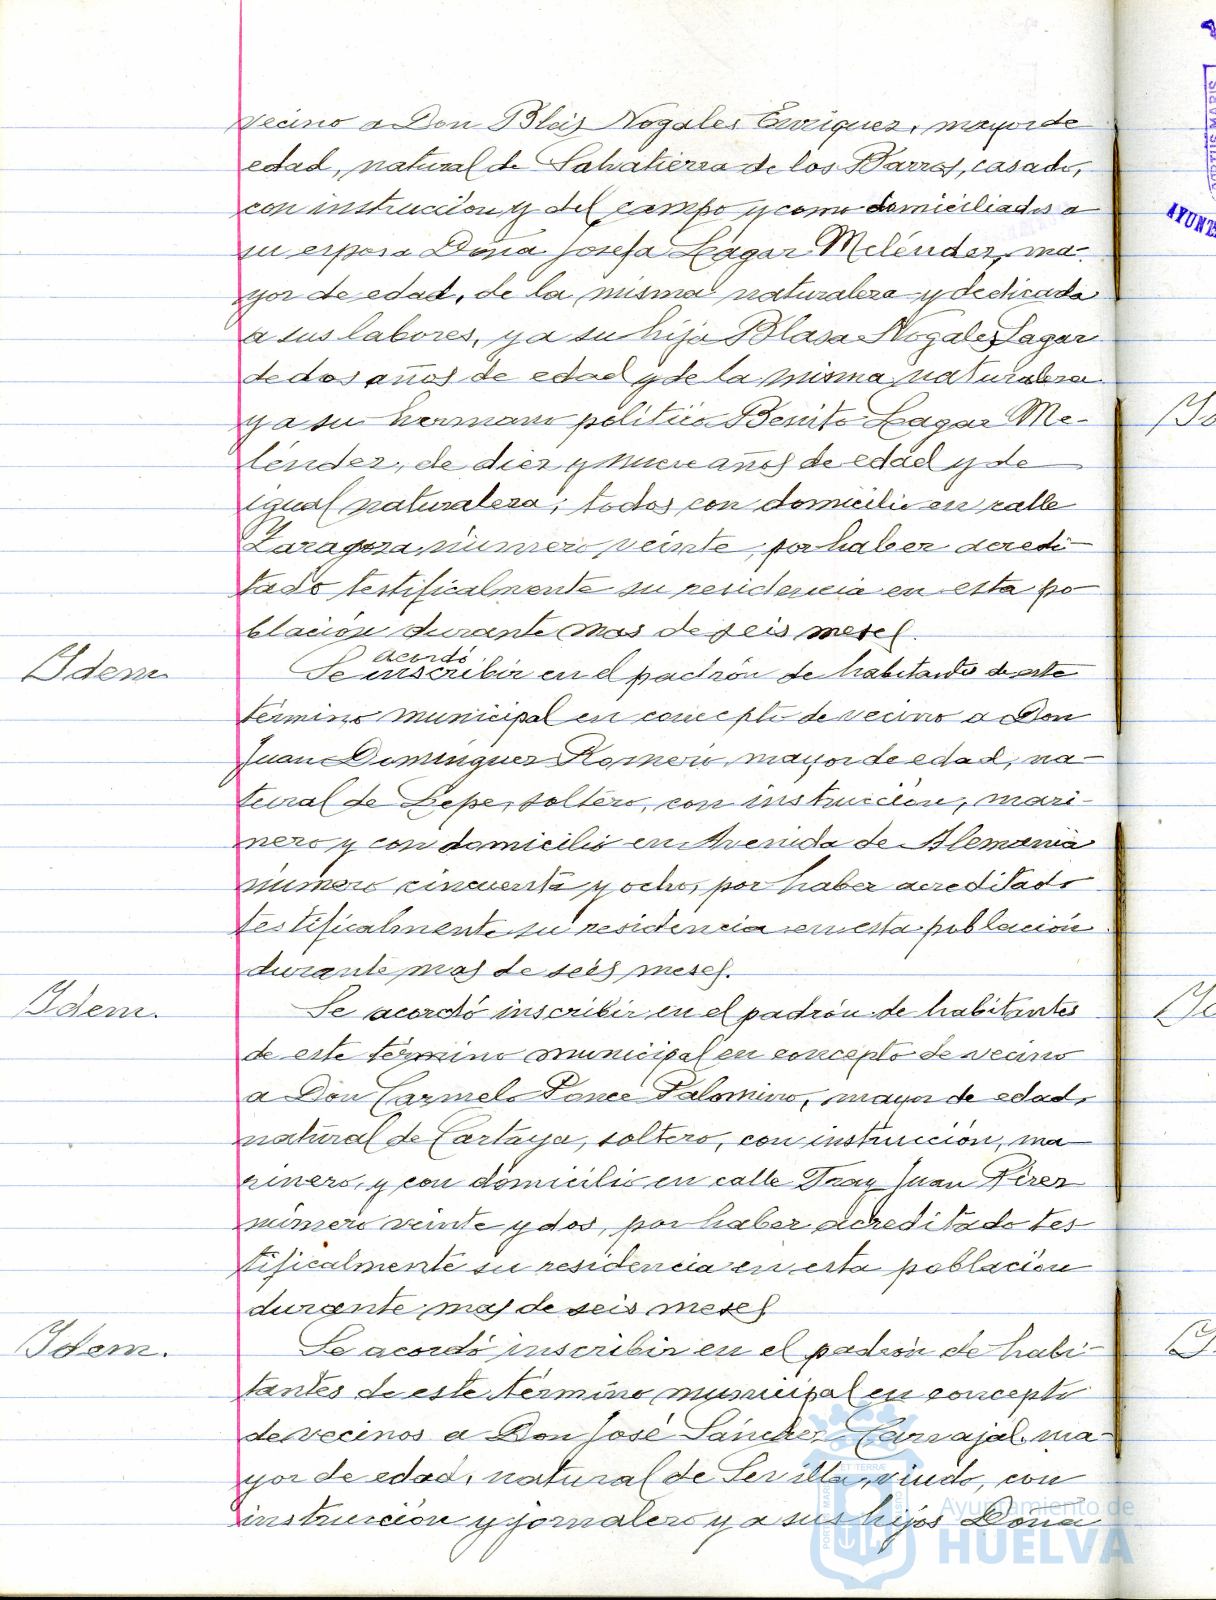 vecino a Don Blas Nogales Enriquez, mayor de
edad, natural de Salvatierra de los Barros, casado,
con instrucción y del campo y como domiciliados a
su esposa Doña Josefa Lagar Meléndez, ma-
yor de edad, de la misma naturaleza y dedicada
a sus labores, y a su hija Blasa Nogales Lagar
de dos años de edad y de la misma naturaleza
y a su hermano político Benito Lagar Me-
léndez, de diez y nueve años de edad y de
igual naturaleza; todos con domicilio en calle
Zaragoza, número veinte, por haber acredi-
tado testificalmente su residencia en esta po
blación durante mas de seis meses.
Idem.
Se acordó inscribir en el padrón de habitantes de este
término municipal en concepto de vecino a Don
Juan Domínguez Romero, mayor de edad, na-
tural de Lepe, soltero, con instrucción, mari-
nero y con domicilio en Avenida de Alemania
número cincuenta y ocho, por haber acreditado
testificalmente su residencia en esta población
durante mas de seis meses.
Idem.
Se acordó inscribir en el padrón de habitantes
de este término municipal en concepto de vecino
a Don Carmelo Ponce Palomino, mayor de edad,
natural de Cartaya, soltero, con instrucción, ma-
rinero, y con domicilio en calle Fray Juan Pérez
número veinte y dos, por haber acreditado tes
tificalmente su residencia en esta población
durante mas de seis meses
Idem.
Se acordó inscribir en el padrón de habi-
tantes de este término municipal en concepto
de vecinos a Don José Sánchez Carvajal, ma-
yor de edad, natural de Sevilla, viudo, con
instrucción y jornalero y a sus hijos Dona
Ayuntamiento de
HUELVA